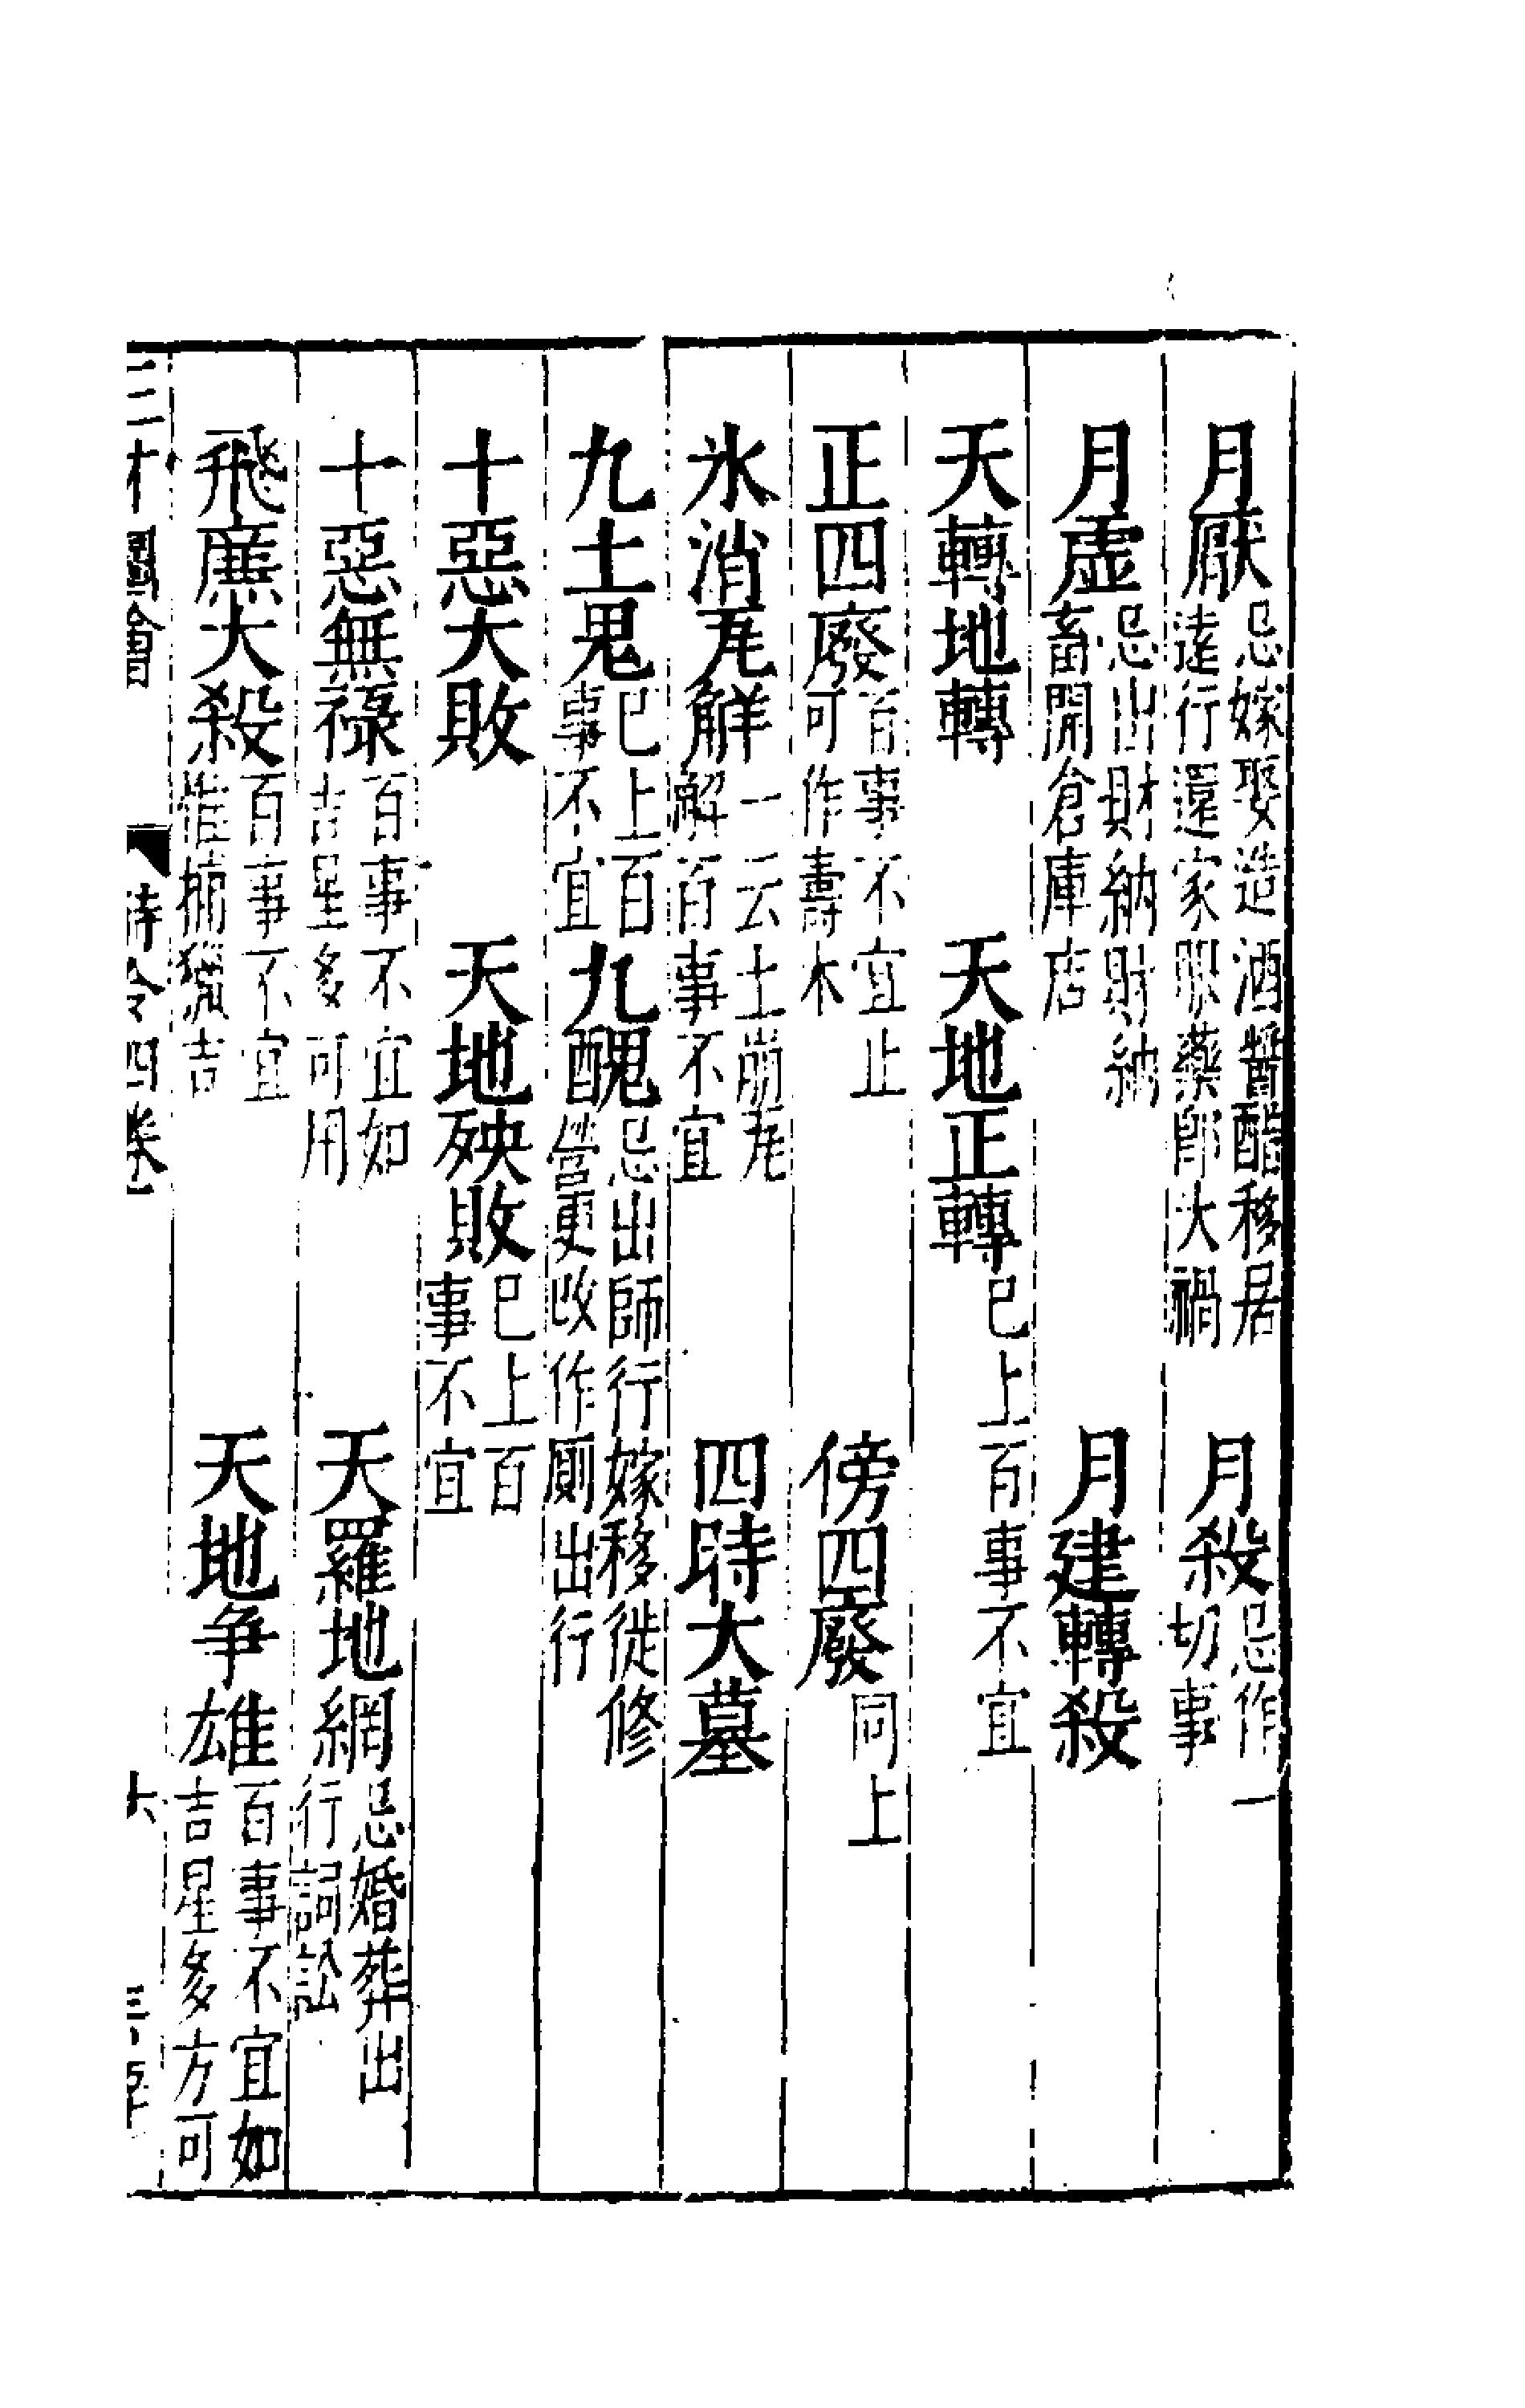 月厭忌嫁娶造酒醬醋移居遠行還家服藥即大禍　月殺忌作一切事
月虛忌出財納財納畜開倉庫店　月建轉殺
天轉地轉　天地正轉已上百事不宜
正四廢百事不宜止可作壽木　傍四廢同上
氷消瓦觧一云土崩瓦解百事不宜　四時大墓
九土鬼已上百事不宜九醜忌出師行嫁移徙修營更改作厠出行
十惡大敗　天地殃敗已上百事不宜
十惡無祿百事不宜如吉星多可用　天羅地網忌婚葬出行詞訟
飛廉大殺百事不宜惟捕獵吉　天地争雄百事不宜如吉星多方可
三才圖會　時令四卷　十六